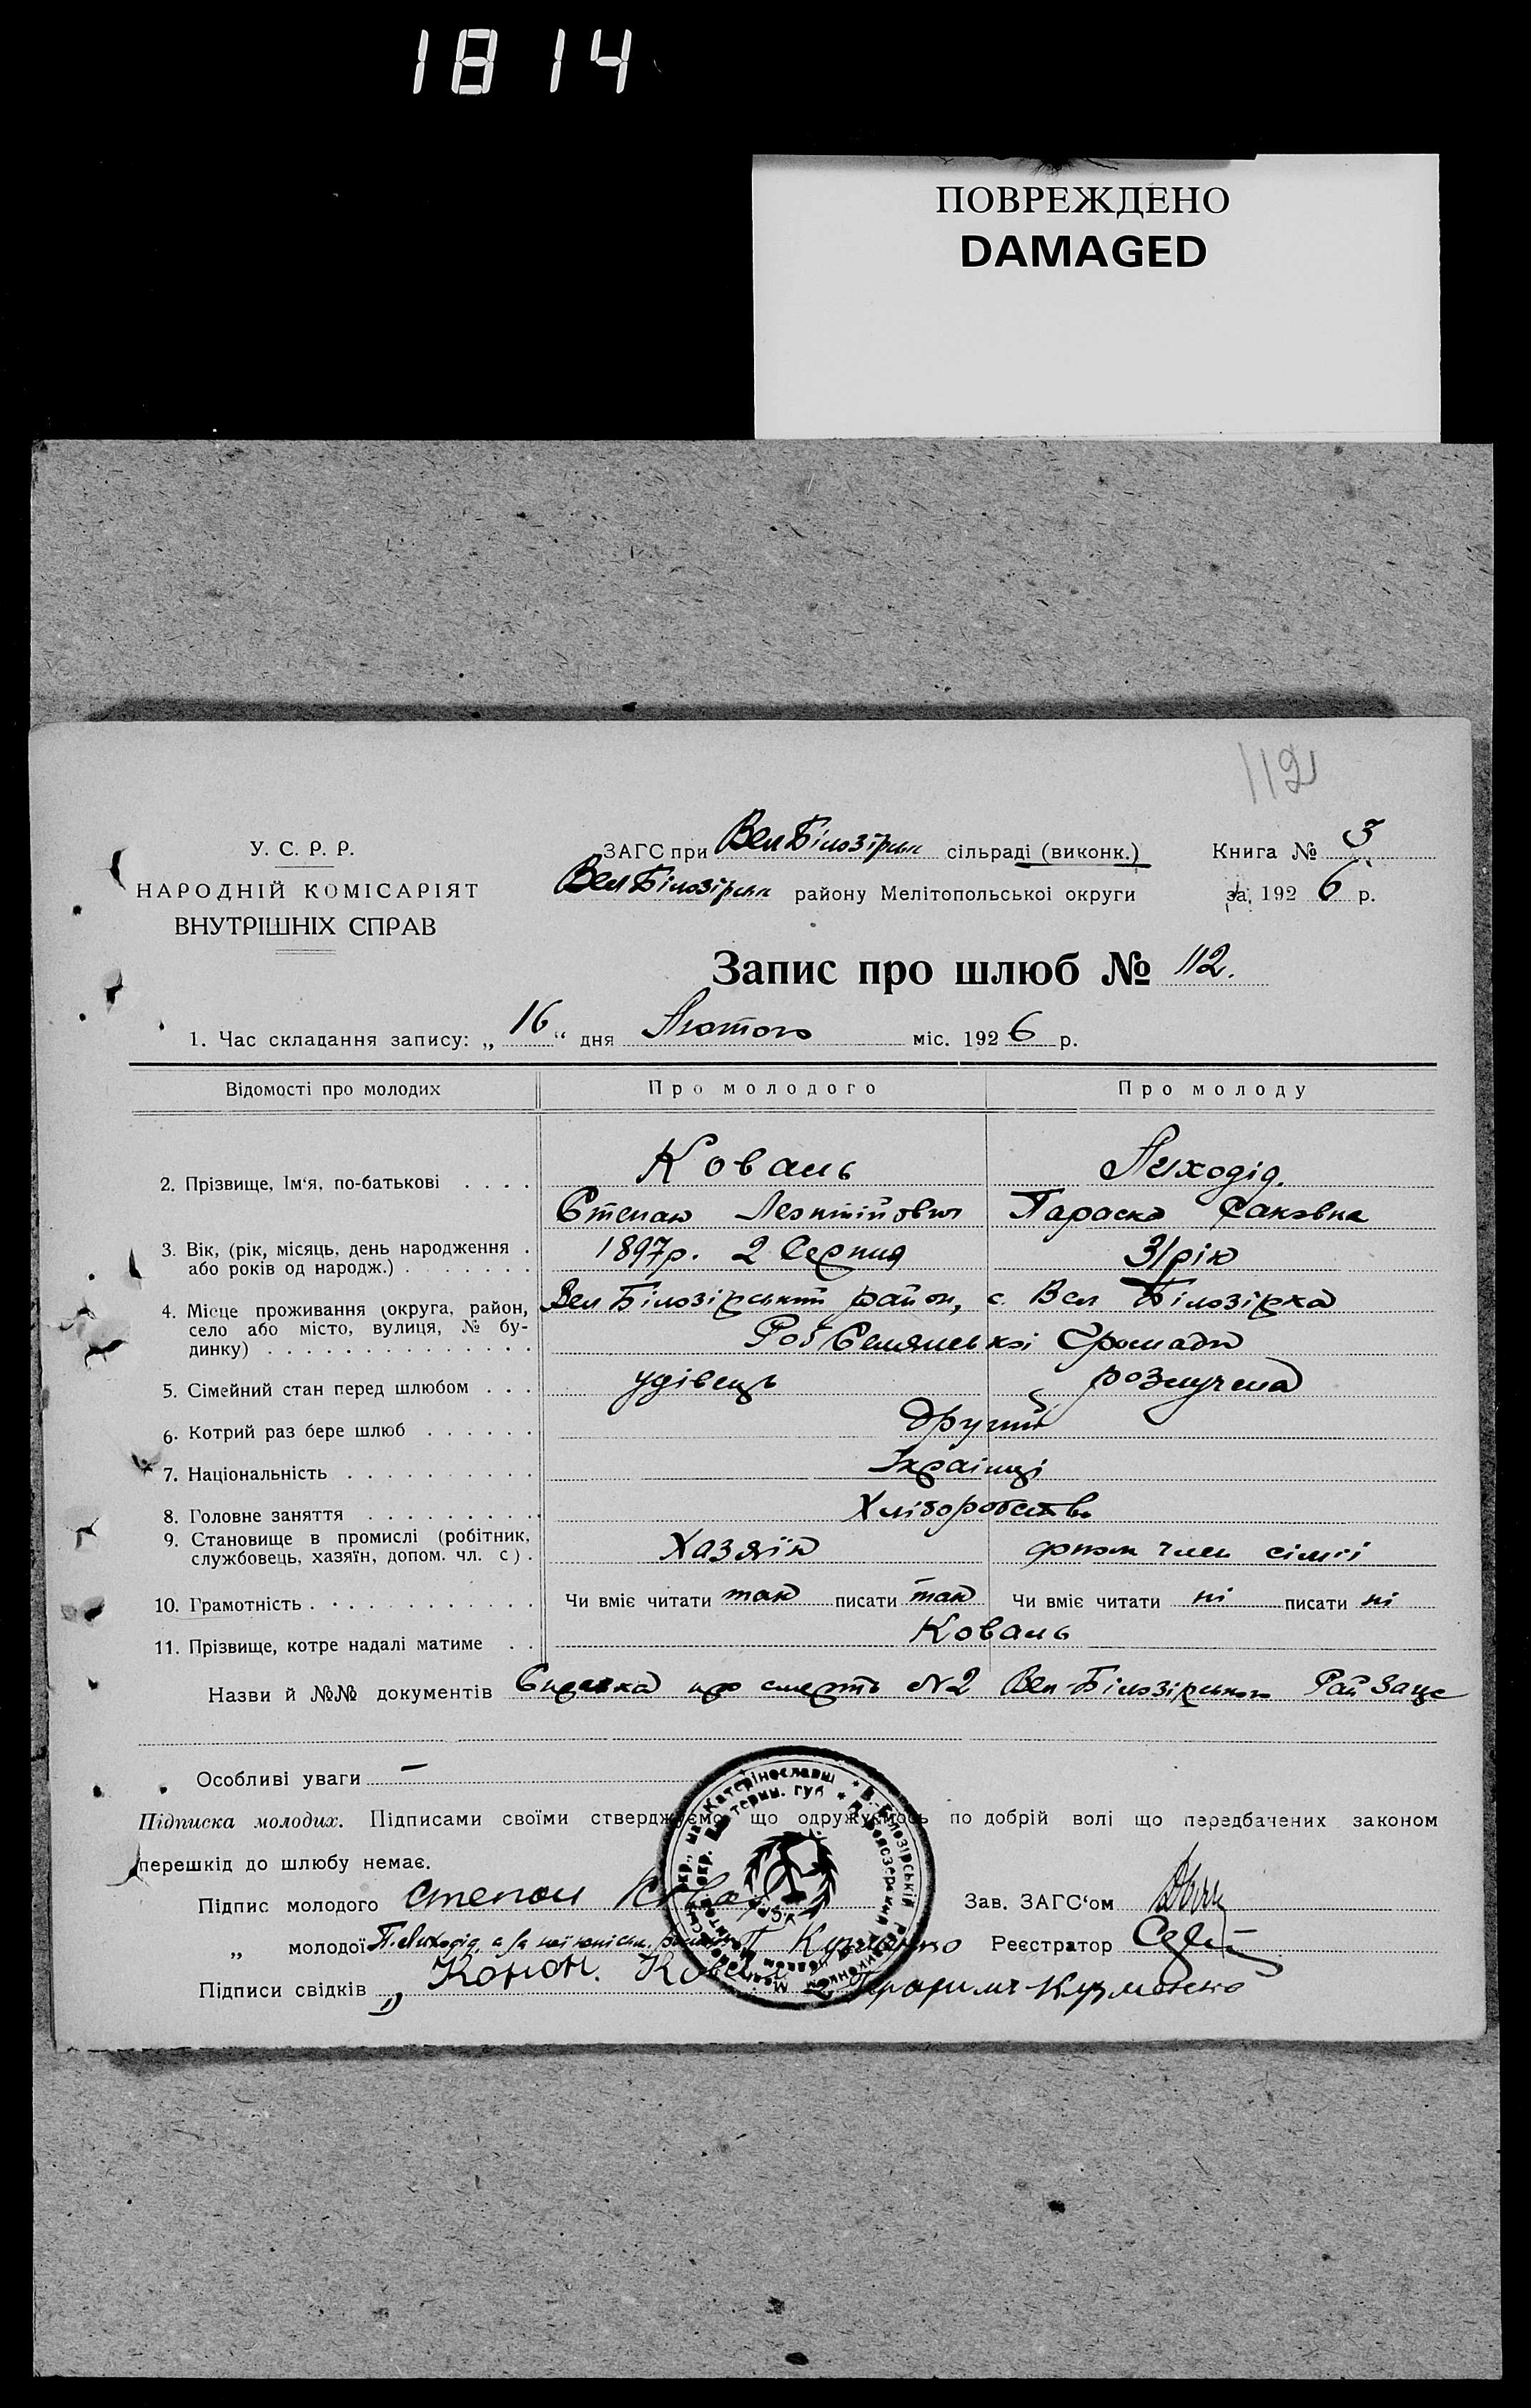 1814
ПОВРЕЖДЕНО
DAMAGED
112
У. С. Р. Р.
НАРОДНІЙ КОМІСАРІЯТ
ВНУТРІШНІХ СПРАВ
ЗАГС при Вел Білозірськ сільраді (виконк.)
Вел Білозірськ району Мелітопольської округи
Книга № 3
за 1926 р.
Запис про шлюб № 112.
1. Час складання запису: „16“ дня Лютого міс. 1926 р.
Відомості про молодих Про молодого Про молоду
2. Прізвище, Ім‘я, по-батькові . . . . Коваль Лиходід.
Степан Леонтійович Параска Саковна
3. Вік, (рік, місяць, день народження . 1897р. 2 Серпня 31 рік
або років од народж.) . . . . . . .
4. Місце проживання (округа, район, Вел Білозірський район, с. Вел Білозірка
село або місто, вулиця, № бу-
динку) . . . . . . . . . . . . . . Роб Селянської Громади
5. Сімейний стан перед шлюбом . . . удівець розлучена
6. Котрий раз бере шлюб . . . . . . другий
7. Національність . . . . . . . . . . Українці
8. Головне заняття . . . . . . . . . Хліборобство
9. Становище в промислі (робітник,
службовець, хазяїн, допом. чл. с) . Хазяїн допом член сімїі
10. Грамотність . . . . . . . . . . . . Чи вміє читати так писати так Чи вміє читати ні писати ні
11. Прізвище, котре надалі матиме . . Коваль
Назви й №№ документів Справка про смерть №2 Вел-Білозірського Рай Загс
Особливі уваги —
Підписка молодих. Підписами своїми стверджуємо, що одружуємось по добрій волі що передбачених законом
перешкід до шлюбу немає.
Підпис молодого Степан Коваль Зав. ЗАГС‘ом
„ молодої П. Лиходід, а за неї П Кузменко Реєстратор
Підписи свідків „ Конон. Коваль 2 Кузменко